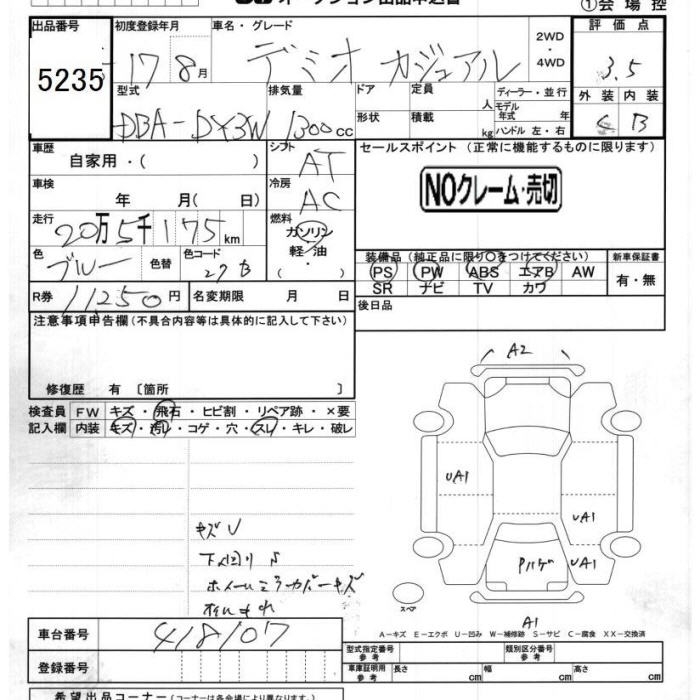 オークション出品申込書
①会場控
出品番号 初度登録年月 車名・グレード 2WD・4WD 評価点
5235 17 8月 デミオ カジュアル 3.5
型式 排気量 ドア 定員 人 ディーラー・並行 外装 内装
DBA-DY3W 1300cc 形状 積載 kg モデル年式 年 ハンドル 左・右 C B
車歴 自家用・( ) シフト AT セールスポイント (正常に機能するものに限ります)
車検 年 月( 日) 冷房 AC NOクレーム・売切
走行 20万5千175km 燃料 ガソリン 軽油 ・( )
色 ブルー 色替 色コード 27B 装備品(純正品に限り○をつけてください) 新車保証書
PS PW ABS エアB AW 有・無
SR ナビ TV カワ
R券 11,250円 名変期限 月 日 後日品
注意事項申告欄(不具合内容等は具体的に記入して下さい)
修復歴 有 〔箇所 〕
検査員 FW キズ・飛石・ヒビ割・リペア跡・×要
記入欄 内装 キズ・汚れ・コゲ・穴・スレ・キレ・破レ
A2
UA1
UA1
UA1
Pハゲ
A1
スペア
キズU
下回りS
ホイールミラーカバーキズ
A-キズ E-エクボ U-凹み W-補修跡 S-サビ C-腐食 XX-交換済
車台番号 418107
登録番号
型式指定番号 参考 類別区分番号 参考
車庫証明用 参考 長さ cm 幅 cm 高さ cm
希望出品コーナー(コーナーは各会場により異なります)